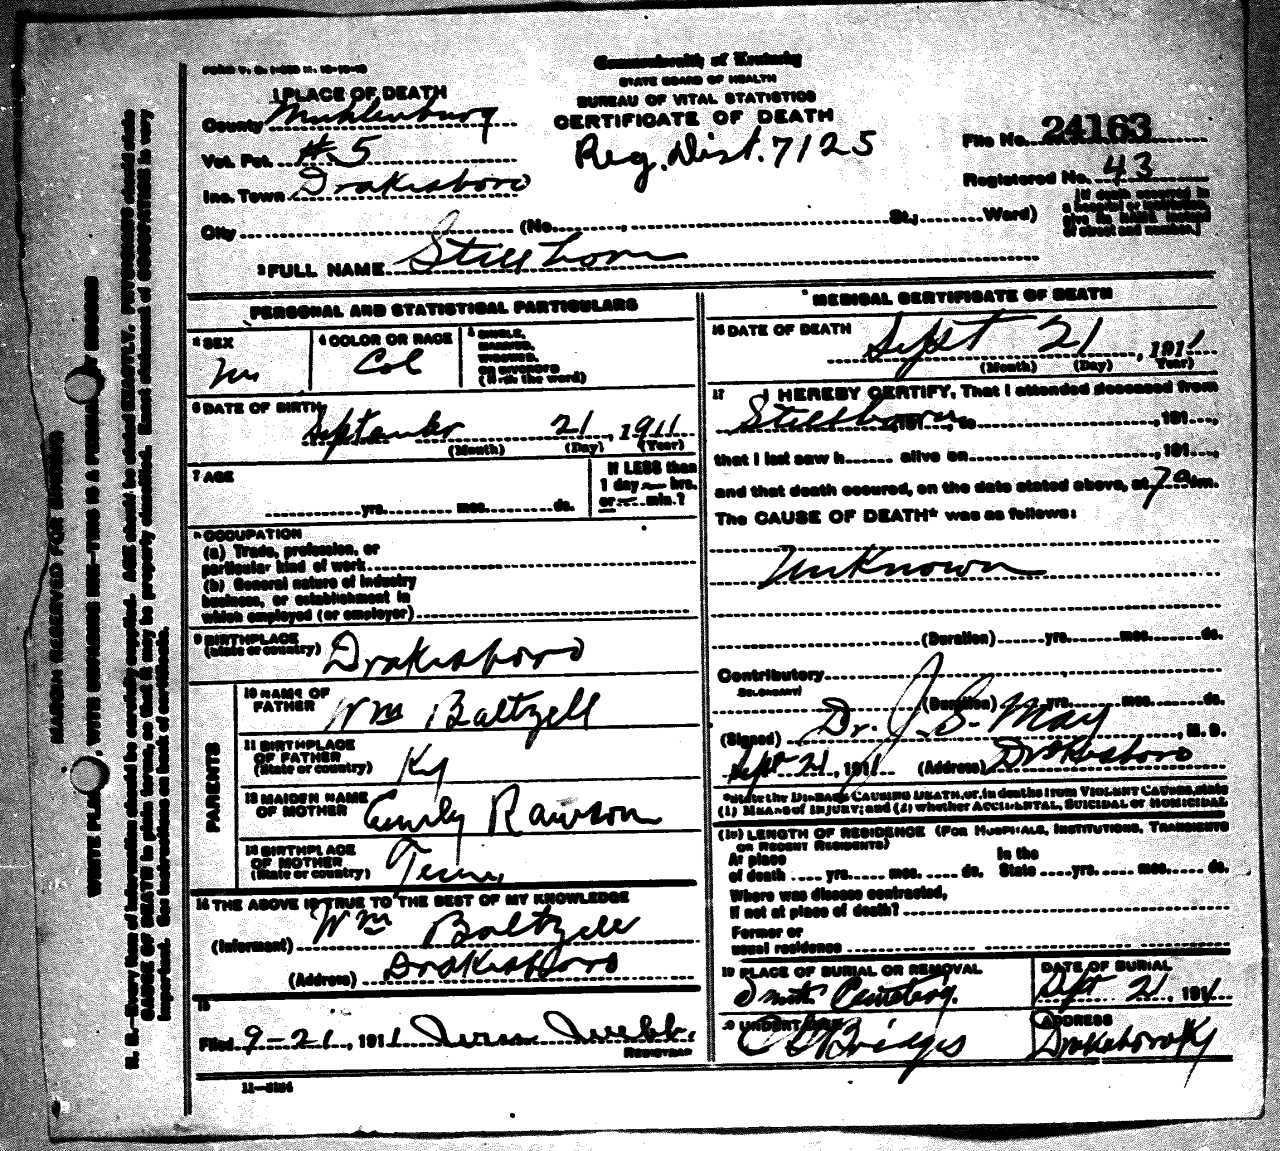 Commonwealth of Kentucky
STATE BOARD OF HEALTH
BUREAU OF VITAL STATISTICS
CERTIFICATE OF DEATH
Reg. Dist. 7125
1 PLACE OF DEATH
County Muhlenburg
Vot. Pct. #5
Inc. Town Drakesboro
City (No. , St.; Ward)
File No. 24163
Registered No. 43
[If death occurred in
a hospital or institution,
give its NAME instead
of street and number.]
2 FULL NAME Still born
PERSONAL AND STATISTICAL PARTICULARS
3 SEX
m
4 COLOR OR RACE
Col
5 SINGLE,
MARRIED,
WIDOWED,
OR DIVORCED
(Write the word)
6 DATE OF BIRTH
September 21, 1911
(Month) (Day) (Year)
7 AGE
yrs. mos. ds.
If LESS than
1 day hrs.
or min.?
8 OCCUPATION
(a) Trade, profession, or
particular kind of work
(b) General nature of industry
business, or establishment in
which employed (or employer)
9 BIRTHPLACE
(State or country) Drakesboro
PARENTS
10 NAME OF
FATHER Wm Baltzell
11 BIRTHPLACE
OF FATHER
(State or country) Ky
12 MAIDEN NAME
OF MOTHER Emily Rawson
13 BIRTHPLACE
OF MOTHER
(State or country) Tenn
14 THE ABOVE IS TRUE TO THE BEST OF MY KNOWLEDGE
(Informant) Wm Baltzell
(Address) Drakesboro
15
Filed 9-21, 1911
REGISTRAR
11-3184
MEDICAL CERTIFICATE OF DEATH
16 DATE OF DEATH
Sept 21, 1911
(Month) (Day) (Year)
17 I HEREBY CERTIFY, That I attended deceased from
Stillborn, 191 , to , 191 ,
that I last saw h alive on , 191 ,
and that death occured, on the date stated above, at 7 a m.
The CAUSE OF DEATH* was as follows:
Unknown
(Duration) yrs. mos. ds.
Contributory
SECONDARY
(Duration) yrs. mos. ds.
(Signed) Dr. J. S. May, M. D.
Sept 21, 1911 (Address) Drakesboro
*State the DISEASE CAUSING DEATH, or, in deaths from VIOLENT CAUSES, state
(1) MEANS of INJURY; and (2) whether ACCIDENTAL, SUICIDAL or HOMICIDAL
(18) LENGTH OF RESIDENCE (FOR HOSPITALS, INSTITUTIONS, TRANSIENTS
OR RECENT RESIDENTS)
At place
of death yrs. mos. ds.
In the
State yrs. mos. ds.
Where was disease contracted,
if not at place of death?
Former or
usual residence
19 PLACE OF BURIAL OR REMOVAL
Smith Cemetery.
DATE OF BURIAL
Sept 21, 1911
UNDERTAKER
Bridges
ADDRESS
Drakesboro Ky
MARGIN RESERVED FOR BINDING
WRITE PLAINLY, WITH UNFADING INK—THIS IS A PERMANENT RECORD
N. B.—Every item of information should be carefully supplied. AGE should be stated EXACTLY. PHYSICIANS should state
CAUSE OF DEATH in plain terms, so that it may be properly classified. Exact statement of OCCUPATION is very
important. See instructions on back of certificate.